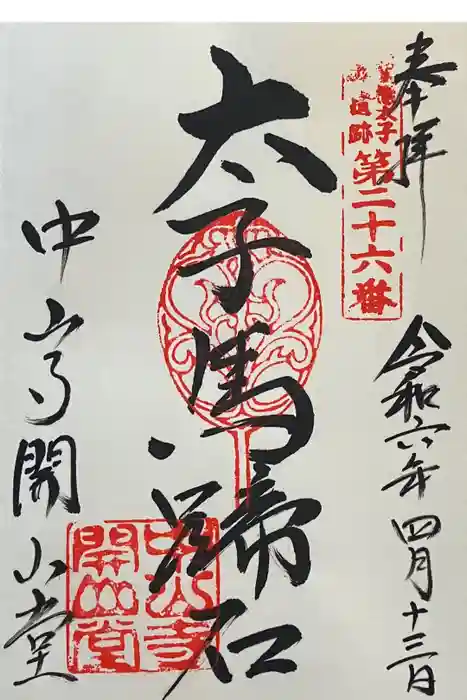 奉拝
聖徳太子
遺跡
第二十六番
令和六年四月十三日
太子馬蹄石
中山寺開山堂
中山寺
開山堂